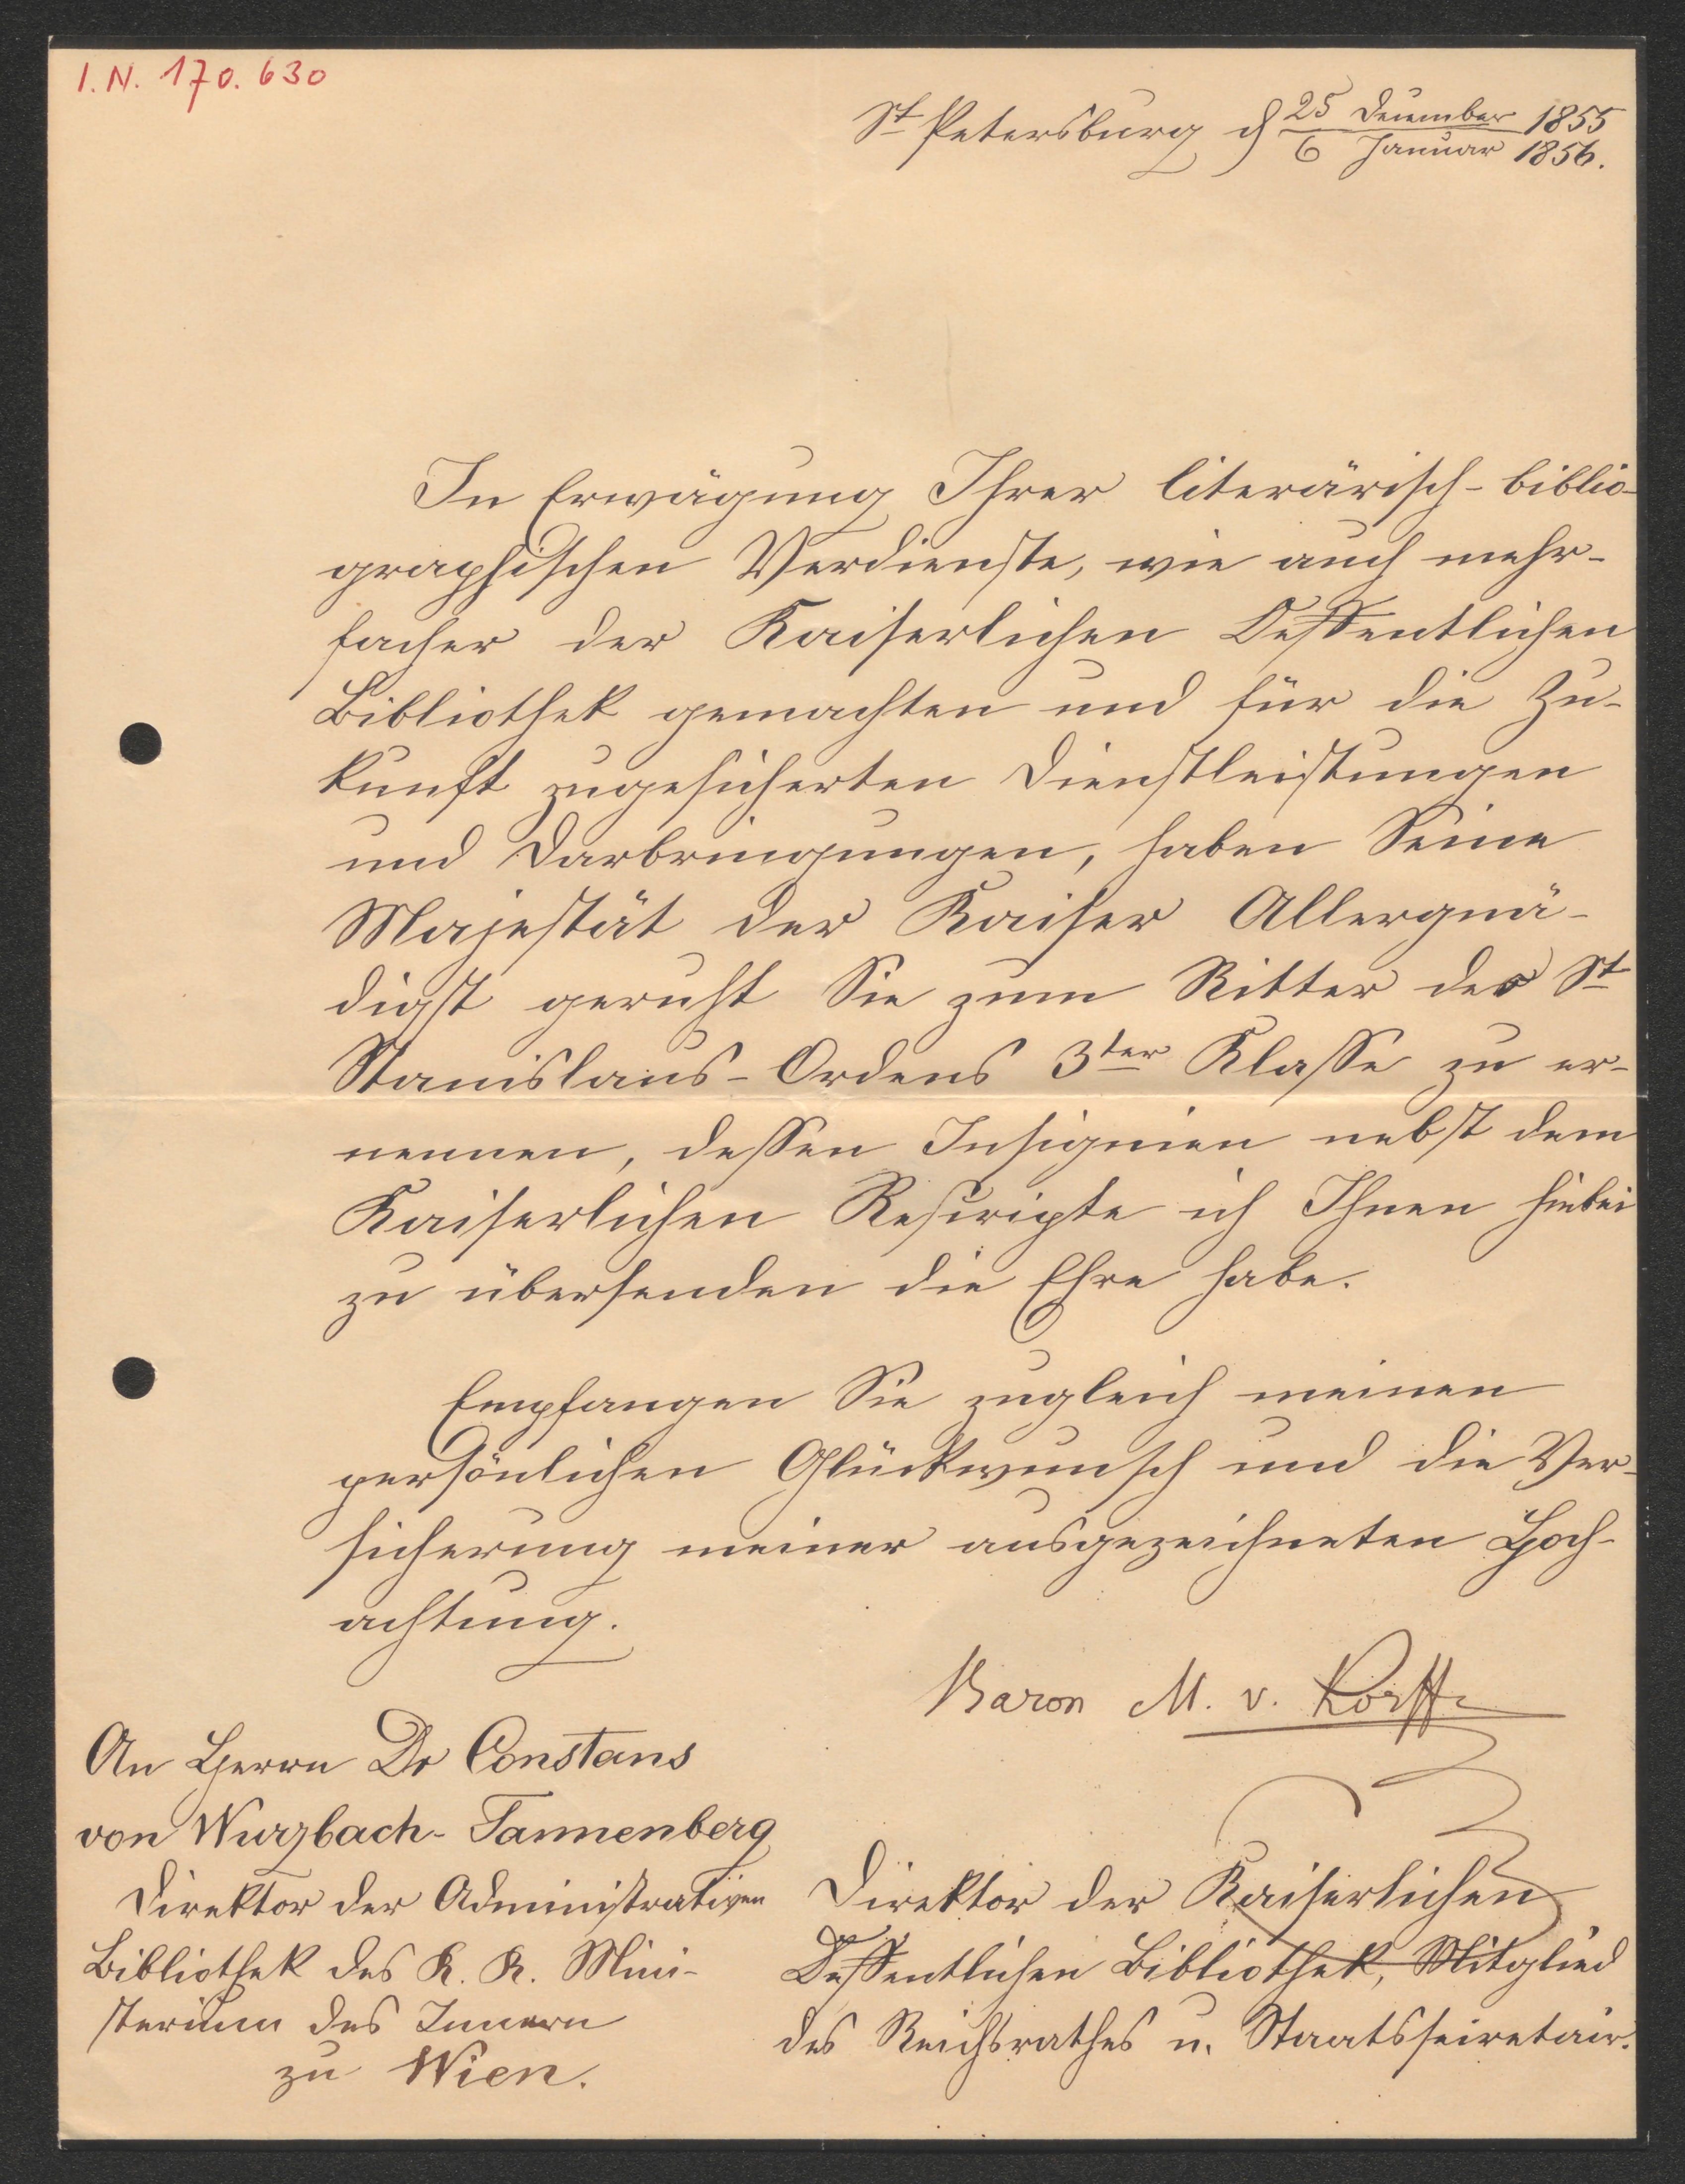 I. N. 170. 630
St Petersburg d 25 December 1855
6 Januar 1856.
In Erwägung Ihrer literärisch-biblio-
graphischen Verdienste, wie auch mehr-
facher der Kaiserlichen Oeffentlichen
Bibliothek gemachten und für die Zu-
kunft zugesicherten Dienstleistungen
und Darbringungen, haben Seine
Majestät der Kaiser Allergnä-
digst geruht Sie zum Ritter des St
Stanislaus-Ordens 3ter Klasse zu er-
nennen, dessen Insignien nebst dem
Kaiserlichen Rescripte ich Ihnen hiebei
zu übersenden die Ehre habe.
Empfangen Sie zugleich meinen
persönlichen Glückwunsch und die Ver-
sicherung meiner ausgezeichneten Hoch-
achtung.
Baron M. v. Korff
An Herrn Dr Constans
von Wurzbach-Tannenberg
Direktor der Administrativen
Bibliothek des K. K. Mini-
sterium des Innern
zu Wien.
Direktor der Kaiserlichen
Oeffentlichen Bibliothek, Mitglied
des Reichsrathes u. Staatssecretair.